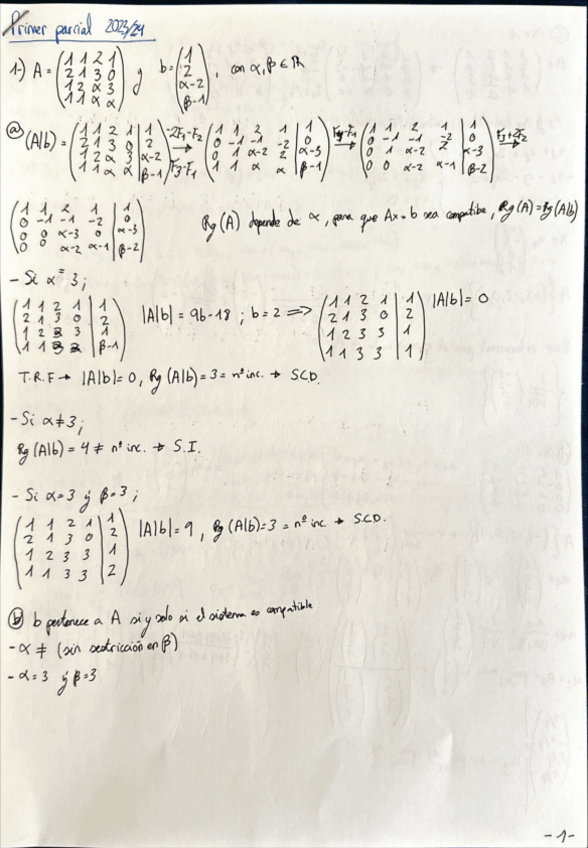 Primer parcial 2023/24
1-) A = (1 1 2 1 / 2 1 3 0 / 1 2 α 3 / 1 1 α α) y b = (1 / 2 / α-2 / β-1), con α, β ∈ ℝ
ⓐ (A|b) = (1 1 2 1 | 1 / 2 1 3 0 | 2 / 1 2 α 3 | α-2 / 1 1 α α | β-1) -2F₁-F₂ → F₃-F₁ (1 1 2 1 | 1 / 0 -1 -1 -2 | 0 / 0 1 α-2 2 | α-3 / 1 1 α α | β-1) F₄-F₁ → (1 1 2 1 | 1 / 0 -1 -1 -2 | 0 / 0 1 α-2 2 | α-3 / 0 0 α-2 α-1 | β-2) F₃+2F₂ →
(1 1 2 1 | 1 / 0 -1 -1 -2 | 0 / 0 0 α-3 0 | α-3 / 0 0 α-2 α-1 | β-2) Rg(A) depende de α, para que Ax=b sea compatibe, Rg(A)=Rg(A|b)
- Si α = 3;
(1 1 2 1 | 1 / 2 1 3 0 | 2 / 1 2 3 3 | 1 / 1 1 3 3 | β-1) |A|b| = 9b-18 ; b=2 => (1 1 2 1 | 1 / 2 1 3 0 | 2 / 1 2 3 3 | 1 / 1 1 3 3 | 1) |A|b| = 0
T.R.F → |A|b| = 0, Rg(A|b) = 3 = nº inc. → S.C.D.
- Si α≠3;
Rg(A|b) = 4 ≠ nº inc. → S.I.
- Si α=3 y β=3;
(1 1 2 1 | 1 / 2 1 3 0 | 2 / 1 2 3 3 | 1 / 1 1 3 3 | 2) |A|b| = 9, Rg(A|b)=3 = nº inc. → S.C.D.
ⓑ b pertenece a A si y solo si el sistema es compatible
- α ≠ (sin restricción en β)
- α=3 y β=3
-1-